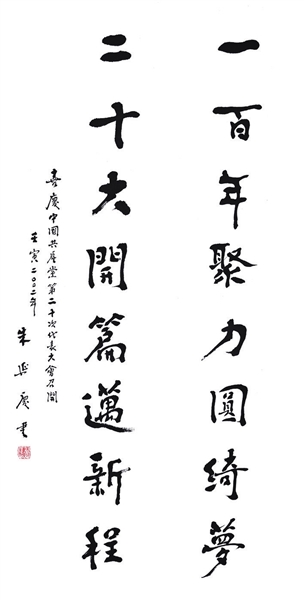 一百年聚力圓綺夢
二十大開篇邁新程
喜慶中國共产党第二十次代表大會召開
壬寅二〇二二年
朱